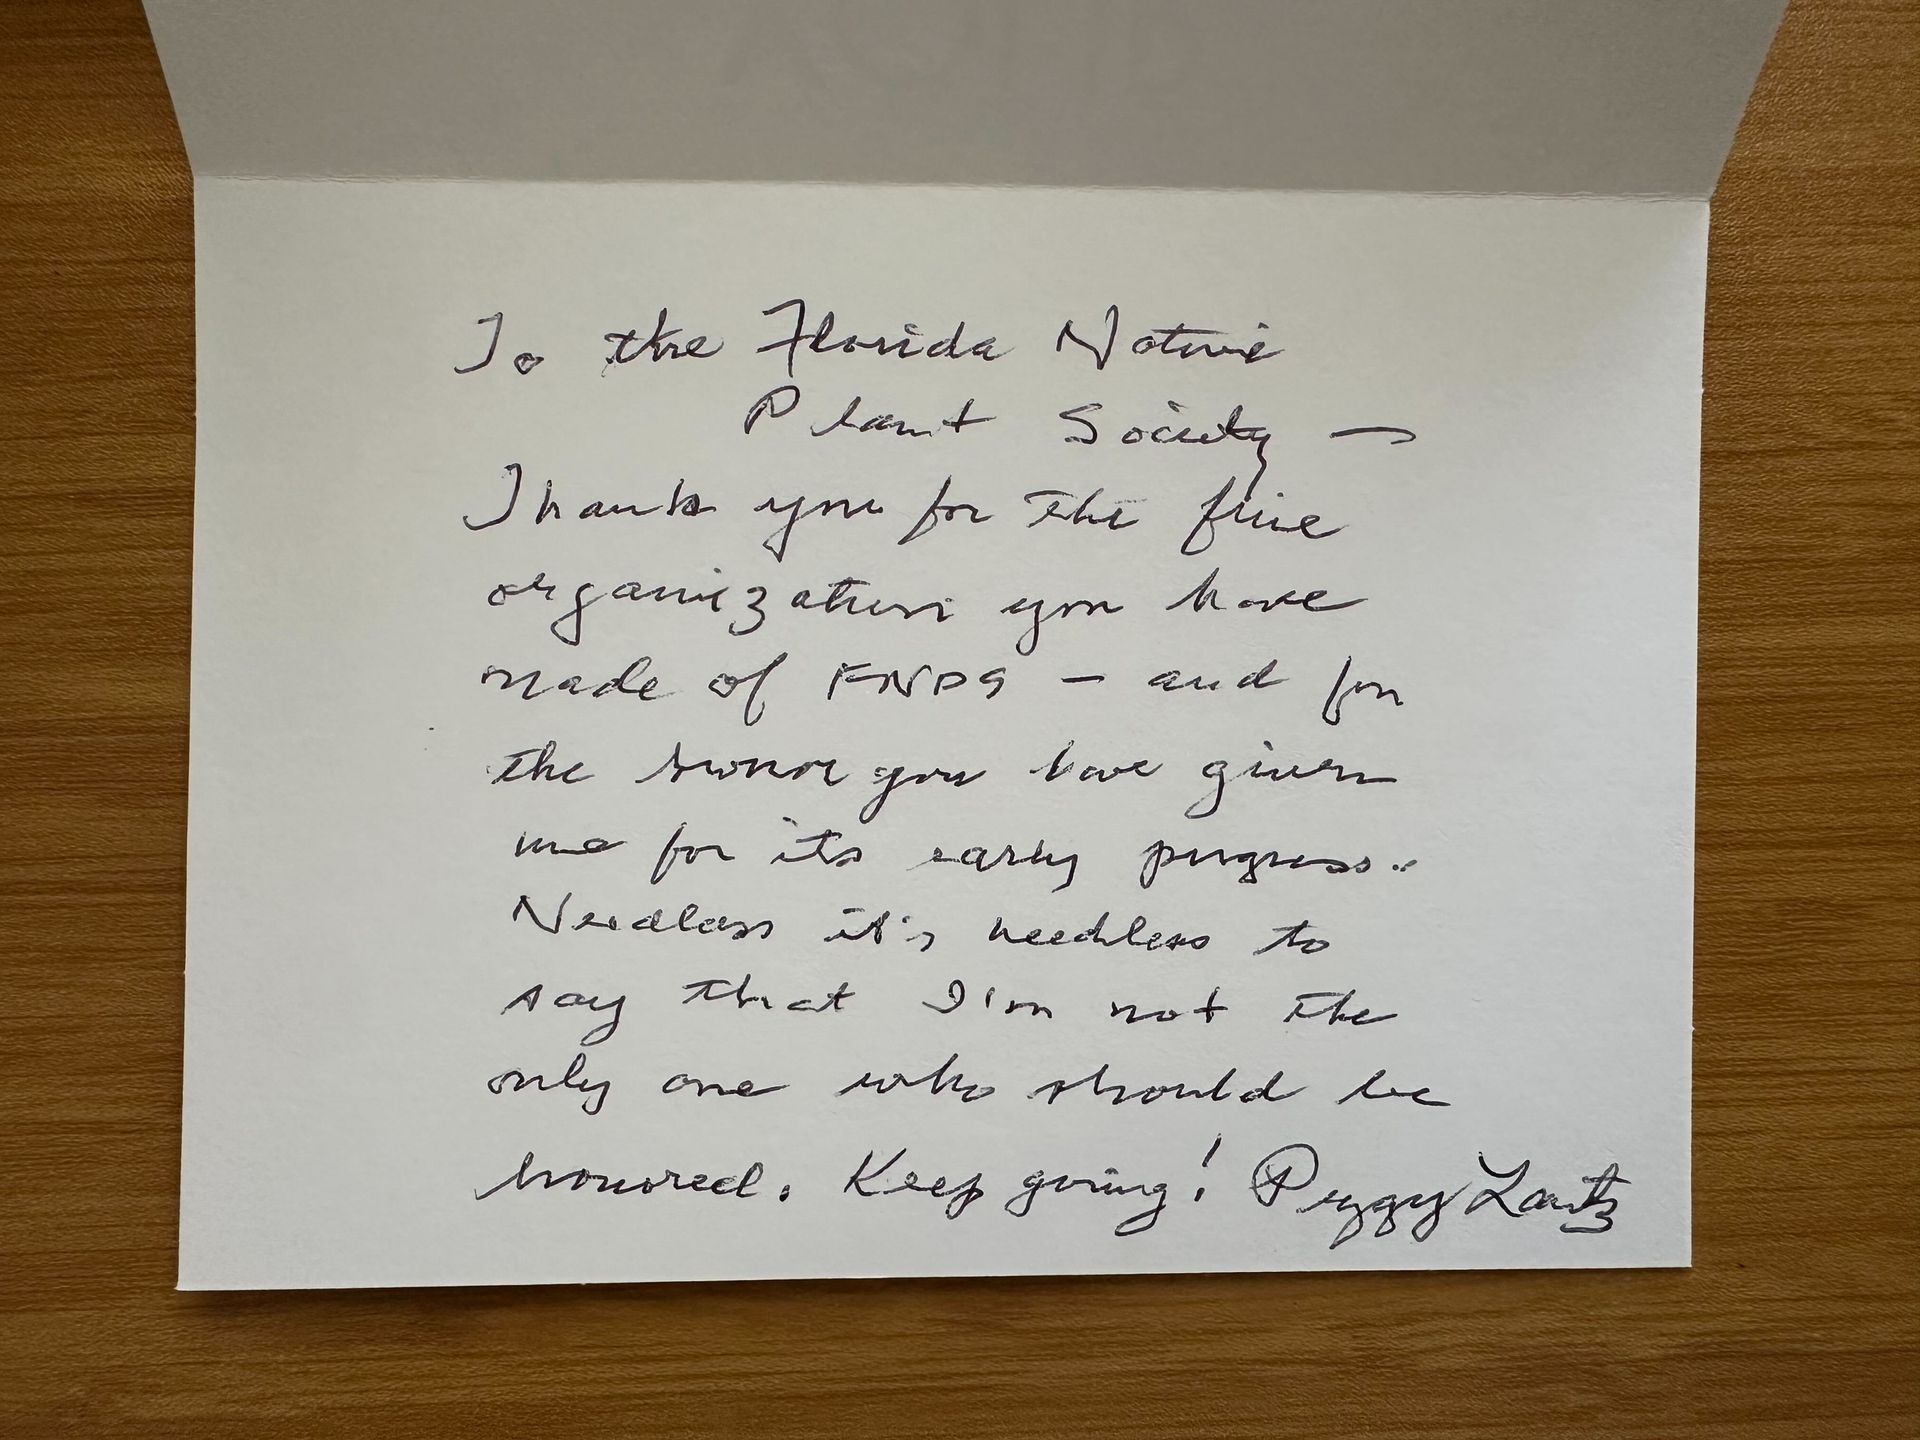 To the Florida Native
Plant Society —
Thank you for the fine
organization you have
made of FNPS — and for
the honor you have given
me for its early progress..
Needless it's needless to
say that I'm not the
only one who should be
honored. Keep going! Peggy Lantz